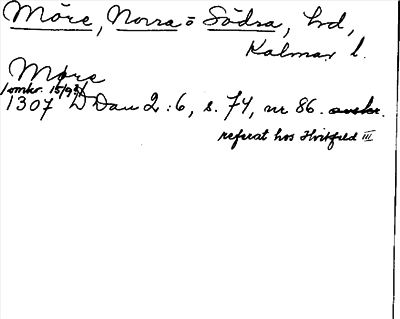 Möre, Norra o Södra, hrd,
Kalmar l.
Møre
(omkr. 15/9 95)
1307 DDan 2:6, s. 74, nr 86. avskr.
referat hos Hvitfeld III